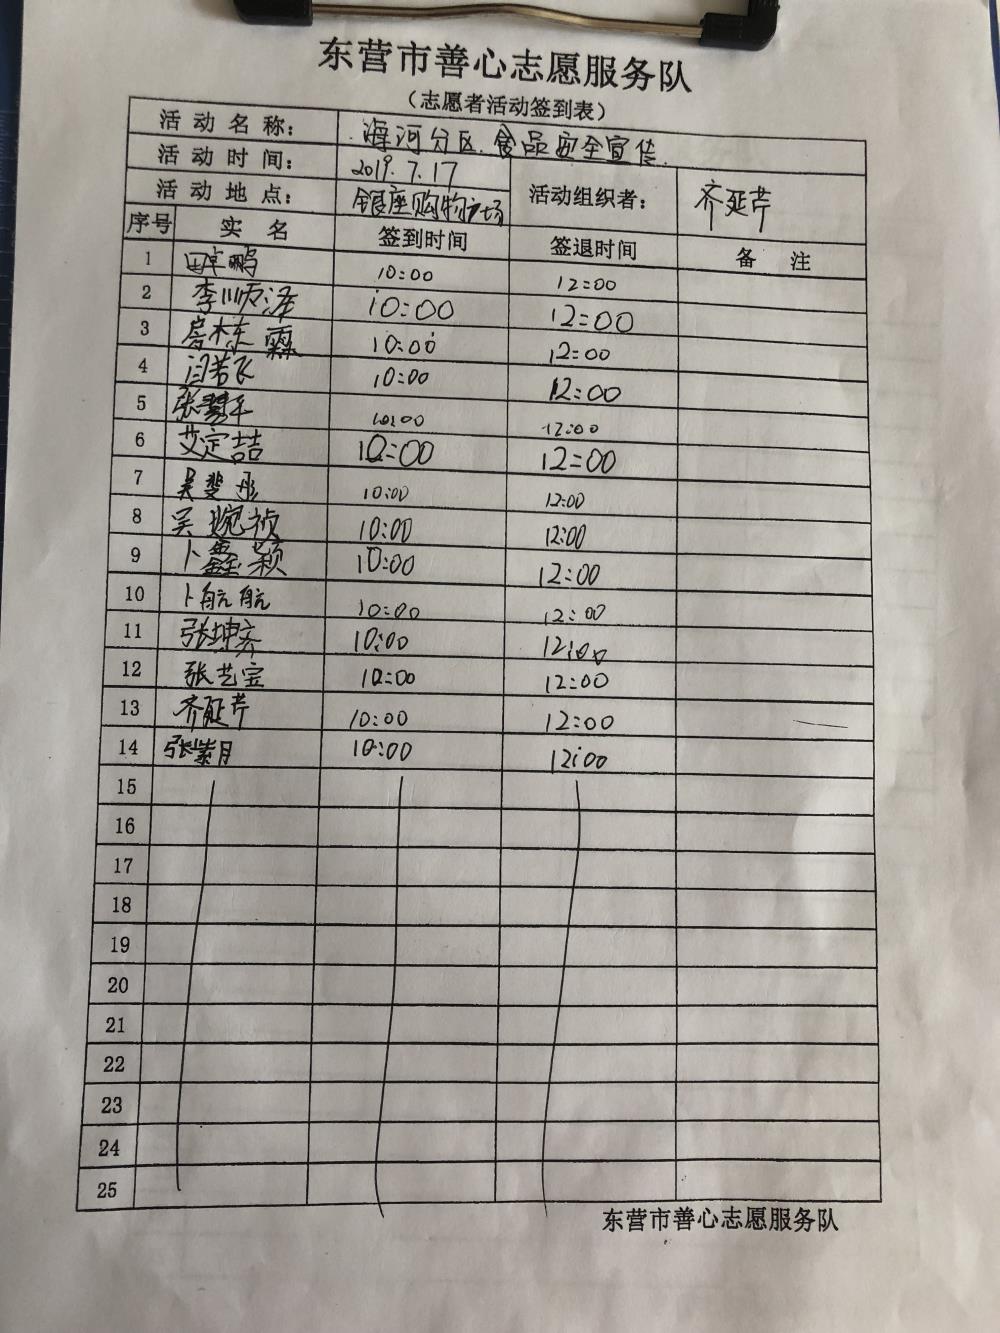 东营市善心志愿服务队
（志愿者活动签到表）
活动名称： 海河分区 食品安全宣传
活动时间： 2019.7.17 活动组织者： 齐延芹
活动地点： 银座购物广场
序号 实名 签到时间 签退时间 备注
1 田卓鹏 10:00 12:00
2 李顺泽 10:00 12:00
3 房栋霖 10:00 12:00
4 闫若飞 10:00 12:00
5 张慧平 10:00 12:00
6 艾定喆 10:00 12:00
7 吴斐彤 10:00 12:00
8 吴婉祯 10:00 12:00
9 卜鑫颖 10:00 12:00
10 卜航航 10:00 12:00
11 张坤 10:00 12:00
12 张艺宝 10:00 12:00
13 齐延芹 10:00 12:00
14 张紫月 10:00 12:00
15
16
17
18
19
20
21
22
23
24
25
东营市善心志愿服务队